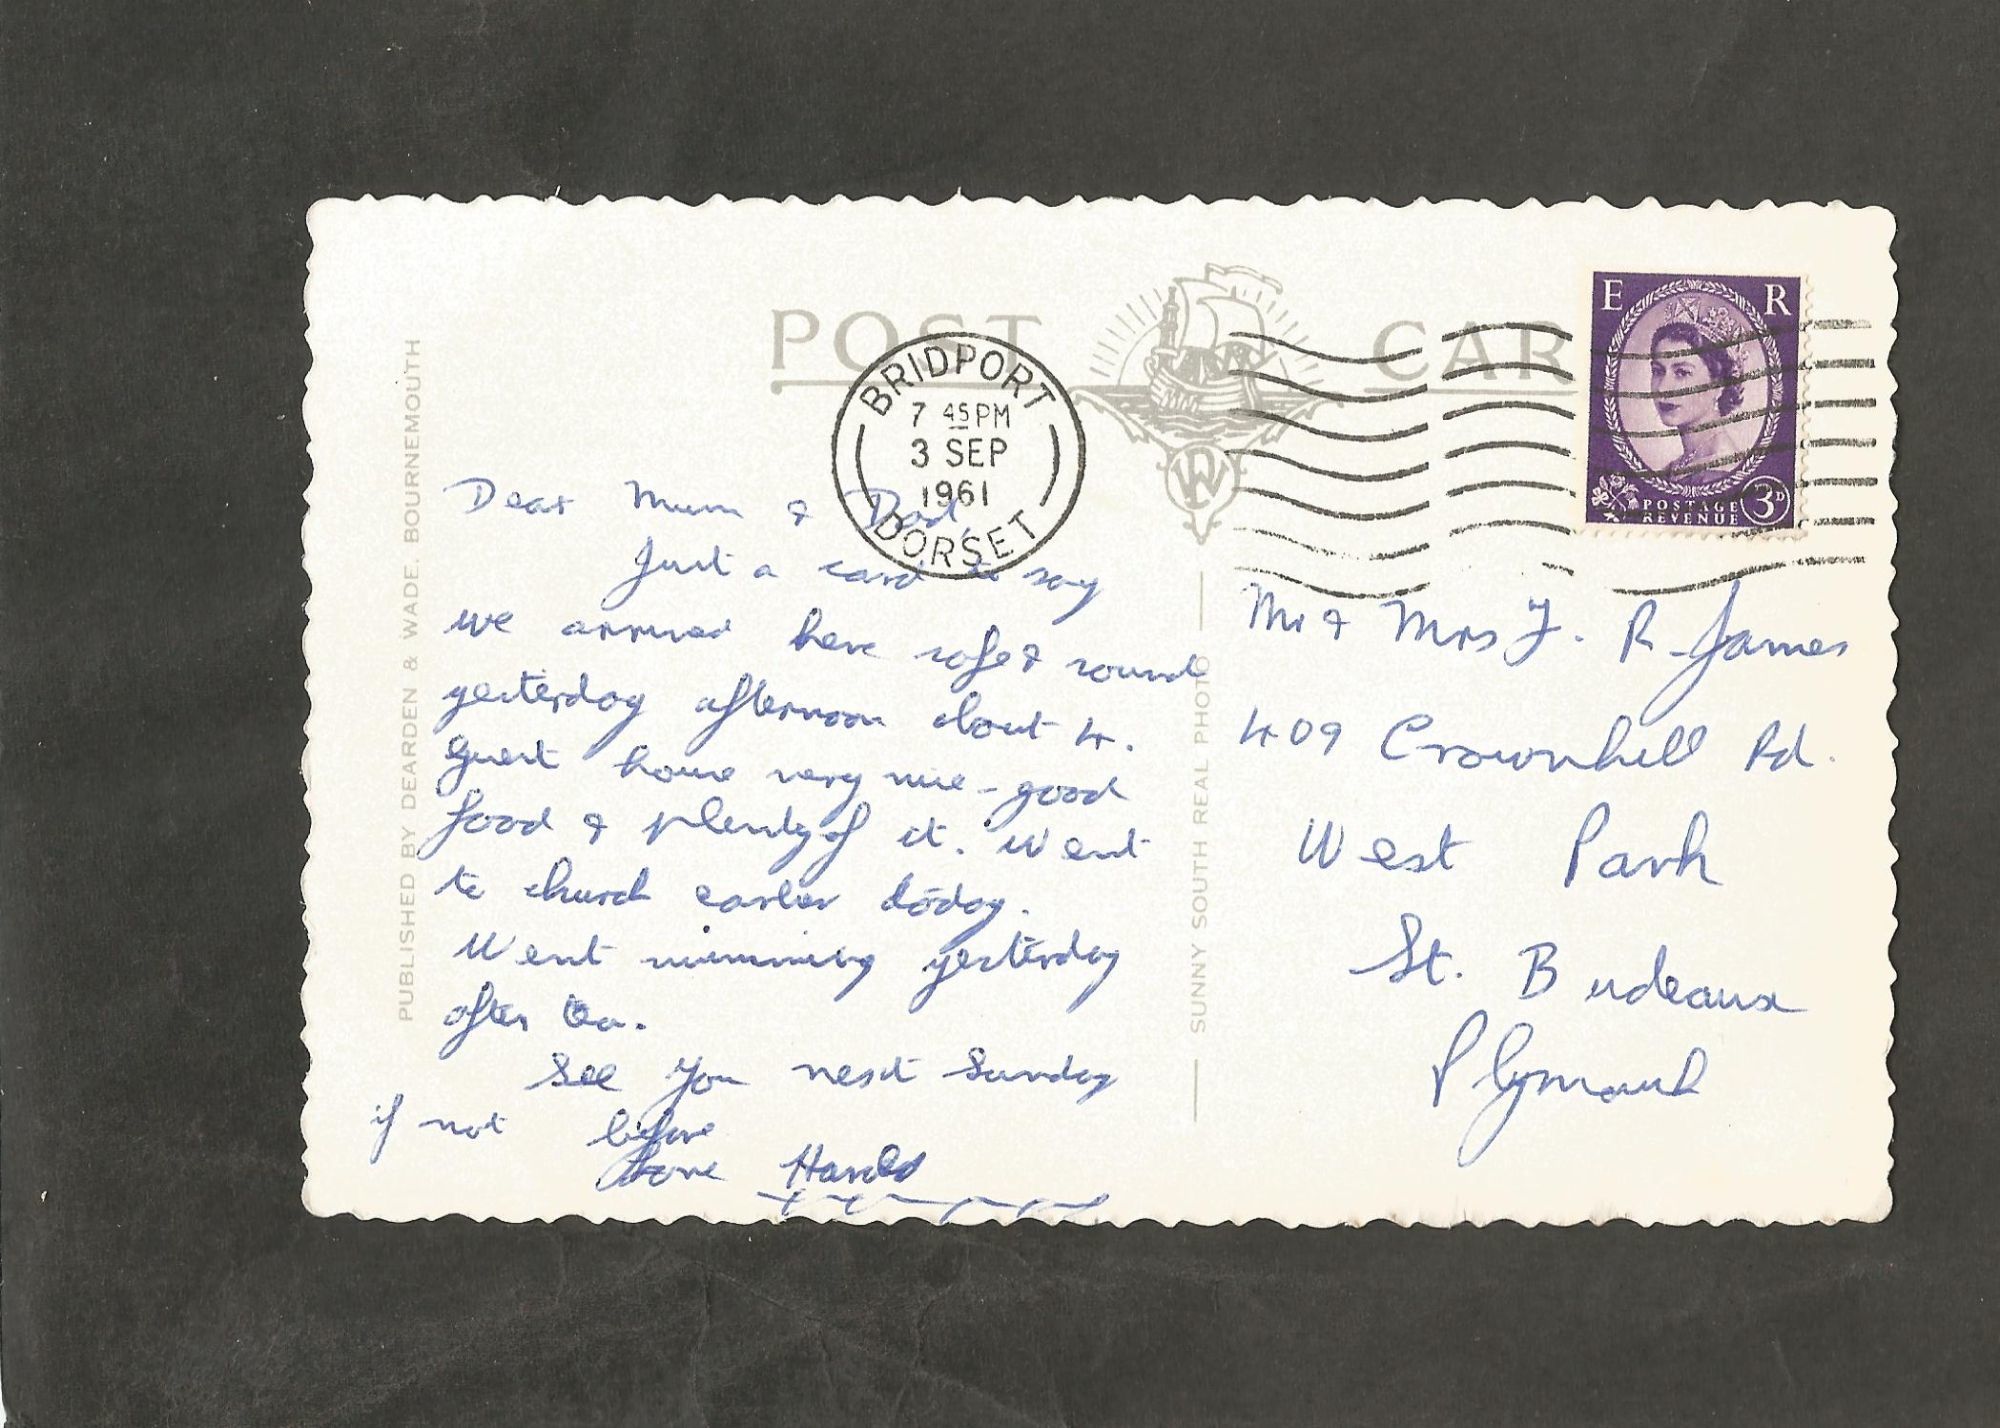 POST CAR
E R
POSTAGE
REVENUE
3D
BRIDPORT
7 45 PM
3 SEP
1961
DORSET
PUBLISHED BY DEARDEN & WADE. BOURNEMOUTH
SUNNY SOUTH REAL PHOTO
Dear Mum & Dad,
Just a card to say
we arrived here safe & sound
yesterday afternoon about 4.
Guest house very nice - good
food & plenty of it. Went
to church earlier today.
Went swimming yesterday
after tea.
See you next Sunday
if not before
Love Harold
Mr & Mrs J. R. James
409 Crownhill Rd.
West Park
St. Budeaux
Plymouth